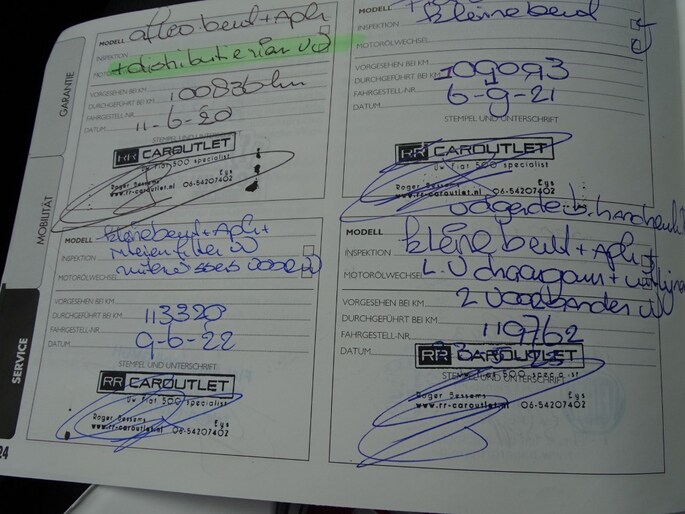 GARANTIE
MOBILITÄT
SERVICE
24
MODELL
beurt + Apk
INSPEKTION
+ distributieriem VV
VORGESEHEN BEI KM
DURCHGEFÜHRT BEI KM 100836 km
FAHRGESTELL-NR.
DATUM 11-6-20
STEMPEL UND UNTERSCHRIFT
RR CAROUTLET
Uw Fiat 500 specialist
Roger Bessems Eys
www.rr-caroutlet.nl 06-54207402
kleine beurt
MODELL
INSPEKTION
MOTORÖLWECHSEL
VORGESEHEN BEI KM
DURCHGEFÜHRT BEI KM 109093
FAHRGESTELL-NR.
DATUM 6-9-21
STEMPEL UND UNTERSCHRIFT
RR CAROUTLET
Uw Fiat 500 specialist
Roger Bessems Eys
www.rr-caroutlet.nl 06-54207402
MODELL kleine beurt + Apk +
INSPEKTION
MOTORÖLWECHSEL
VORGESEHEN BEI KM
DURCHGEFÜHRT BEI KM 113320
FAHRGESTELL-NR.
DATUM 9-6-22
STEMPEL UND UNTERSCHRIFT
RR CAROUTLET
Uw Fiat 500 specialist
Roger Bessems Eys
www.rr-caroutlet.nl 06-54207402
MODELL kleine beurt + Apk
INSPEKTION
MOTORÖLWECHSEL
VORGESEHEN BEI KM 2 voorbanden
DURCHGEFÜHRT BEI KM
FAHRGESTELL-NR. 119762
DATUM
RR CAROUTLET
STEMPEL UND UNTERSCHRIFT
Roger Bessems Eys
www.rr-caroutlet.nl 06-54207402